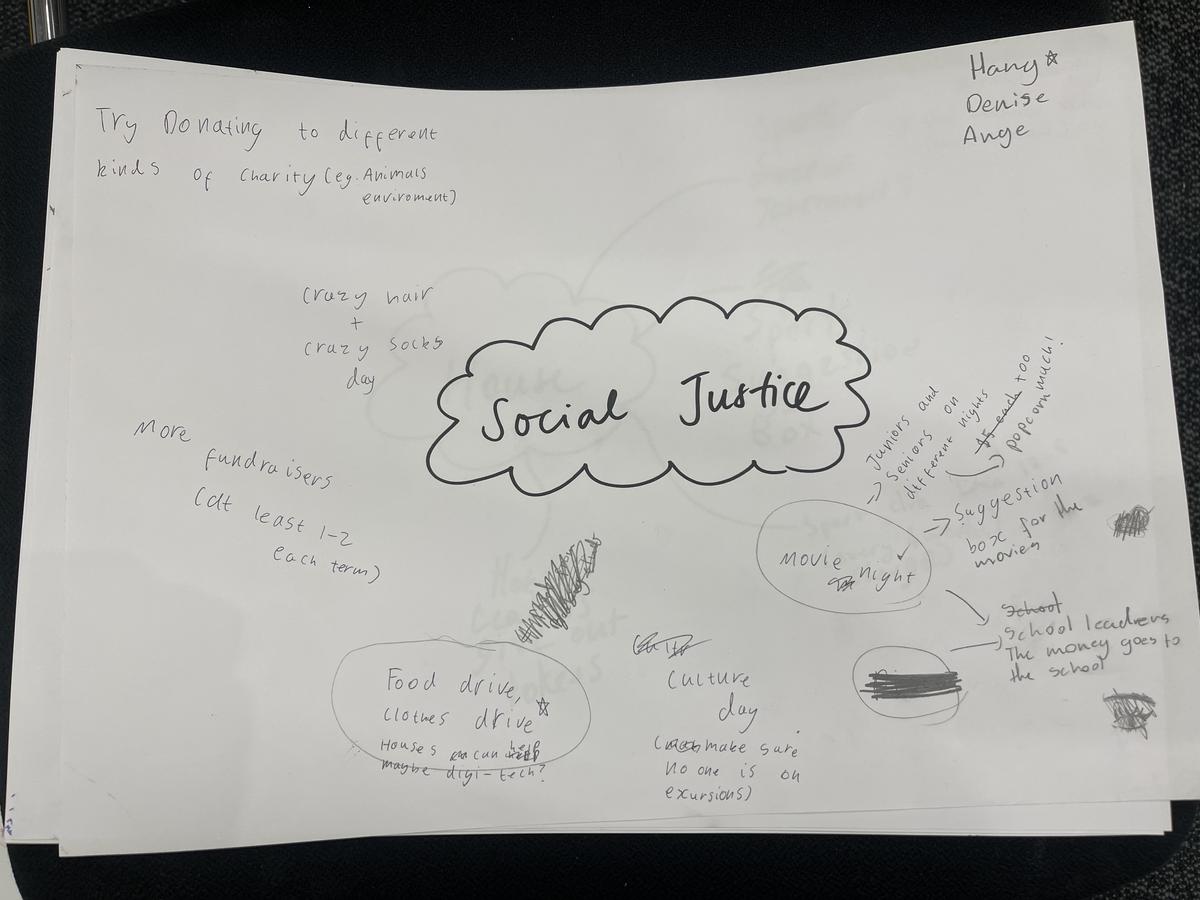 Hany☆
Denise
Ange
Try Donating to different
kinds of charity (eg. Animals
enviroment)
crazy hair
+
crazy socks
day
Social Justice
More
fundraisers
(at least 1-2
each term)
Juniors and
Seniors on
different nights
$5 each too
popcorn much!
-> Suggestion
box for the
movies
movie
night
School
School leaders
The money goes to
the school
Food drive,
clothes drive☆
Houses can help
maybe digi-tech?
Culture
day
(make sure
no one is on
exursions)